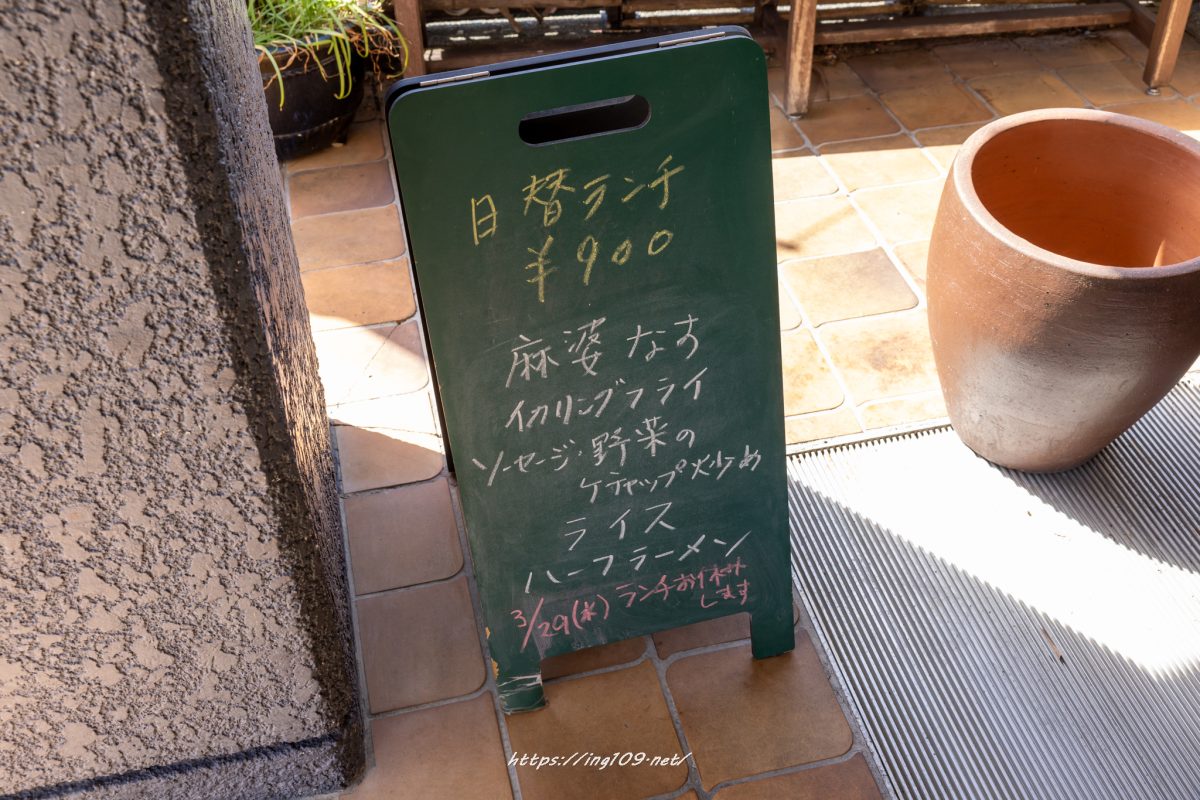 日替ランチ
¥900
麻婆なす
イカリングフライ
ソーセージ・野菜の
ケチャップ炒め
ライス
ハーフラーメン
3/29(水)ランチお休み
します
https://ing109.net/